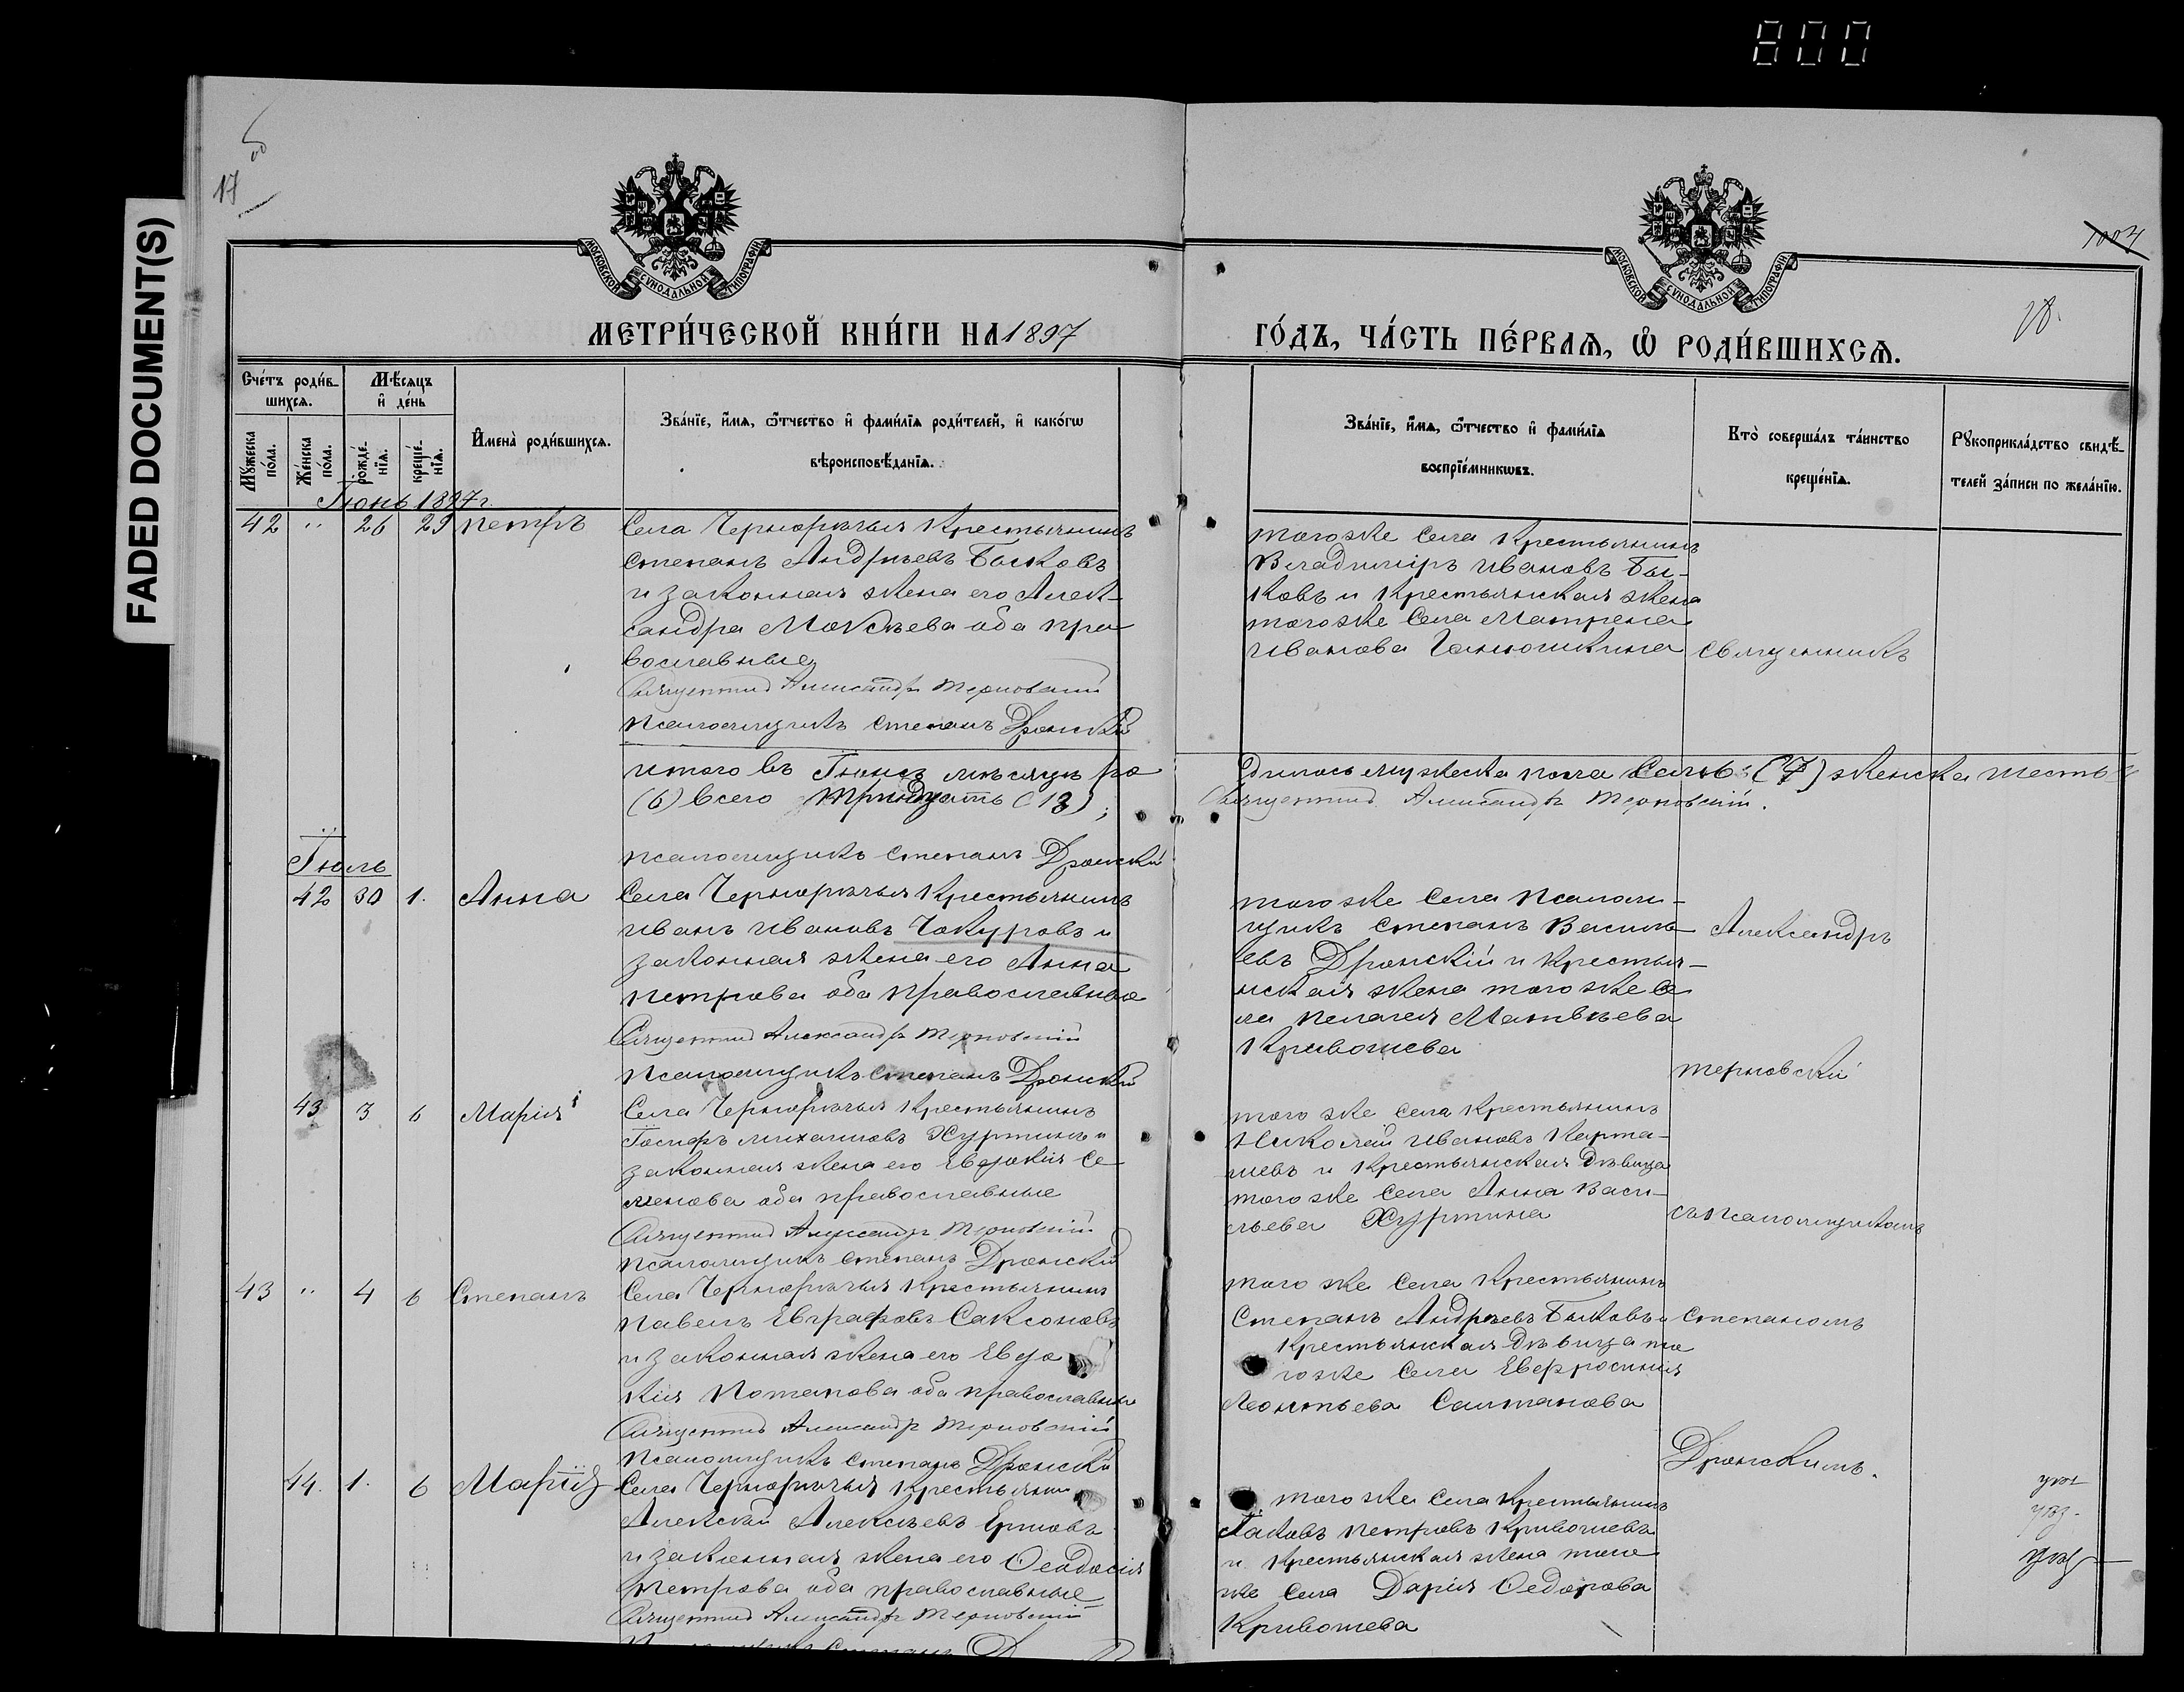 800
FADED DOCUMENT(S)
17
1004
МОСКОВСКОЙ СѴНОДАЛЬНОЙ ТИПОГРАФІИ
МОСКОВСКОЙ СѴНОДАЛЬНОЙ ТИПОГРАФІИ
МЕТРИ́ЧЕСКОЙ КНИ́ГИ НА 1897
ГО́ДЪ, ЧА́СТЬ ПЕ́РВАѦ, Ѡ҆ РОДИ́ВШИХСѦ.
Сче́тъ роди́в-
шихсѧ.
Мѣ́сѧцъ
и҆ де́нь
Мꙋ́жеска по́ла.
Же́нска по́ла.
рожде́нїѧ.
креще́нїѧ.
И҆мена̀ роди́вшихсѧ.
Зва́нїе, и҆́мѧ, ѻ҆́тчество и҆ фами́лїѧ роди́телей, и҆ како́гѡ
вѣроисповѣ́данїѧ.
Зва́нїе, и҆́мѧ, ѻ҆́тчество и҆ фами́лїѧ
воспрїе́мникѡвъ.
Кто̀ соверша́лъ та́инство
креще́нїѧ.
Рꙋкоприкла́дство свидѣ́-
телей за́писи по жела́нїю.
Іюнь 1897 г.
42 " 26 29 Петръ
Села Чернорѣчья Крестьянинъ
Степанъ Андрѣевъ Быковъ
и законная жена его Алек-
сандра Моисѣева оба пра
вославные
Священникъ Александръ Терновскій
Псаломщикъ Степанъ Дронскій
тогоже села Крестьянинъ
Владиміръ Ивановъ Бы-
ковъ и Крестьянская жена
тогоже села Матрена
Иванова Ганюшкина
Священникъ
Итого въ Іюнѣ мѣсяцѣ ро
дилось мужеска пола Семь (7) женска шесть
(6) всего тринадцать (13);
Священникъ Александръ Терновскій.
Псаломщикъ Степанъ Дронскій
Іюль
42 30 1. Анна
Села Чернорѣчья Крестьянинъ
Иванъ Ивановъ Чокуровъ и
законная жена его Анна
Петрова оба православные
Священникъ Александръ Терновскій
Псаломщикъ Степанъ Дронскій
того же села Псалом-
щикъ Степанъ Василь-
евъ Дронскій и Крестья-
нская жена того же се
ла Пелагея Матвѣева
Кривошева
Александръ
Терновскій
43 3 6 Марія
Села Чернорѣчья Крестьянинъ
Іосифъ Михайловъ Хуртинъ и
законная жена его Евдокія Се-
менова оба православные
Священникъ Александръ Терновскій
Псаломщикъ Степанъ Дронскій
того же села Крестьянинъ
Николай Ивановъ Карта-
шевъ и Крестьянская дѣвица
того же села Анна Васи-
льева Хуртина
съ псаломщикомъ
43 " 4 6 Степанъ
Села Чернорѣчья Крестьянинъ
Павелъ Евграфовъ Саксоновъ
и законная жена его Евдо
кія Потапова оба православные
Священникъ Александръ Терновскій
Псаломщикъ Степанъ Дронскій
того же села Крестьянинъ
Степанъ Андреевъ Быковъ и
Крестьянская дѣвица то
гоже села Евфросинія
Леонтьева Салтанова
Степаномъ
Дронскимъ.
44. 1. 6 Марія
Села Чернорѣчья Крестьянинъ
Алексѣй Алексѣевъ Ершовъ
и законная жена его Ѳеодосія
Петрова оба православные
Священникъ Александръ Терновскій
того же села Крестьянинъ
Іаковъ Петровъ Кривошевъ
и Крестьянская жена того
же села Дарія Ѳедорова
Кривошева